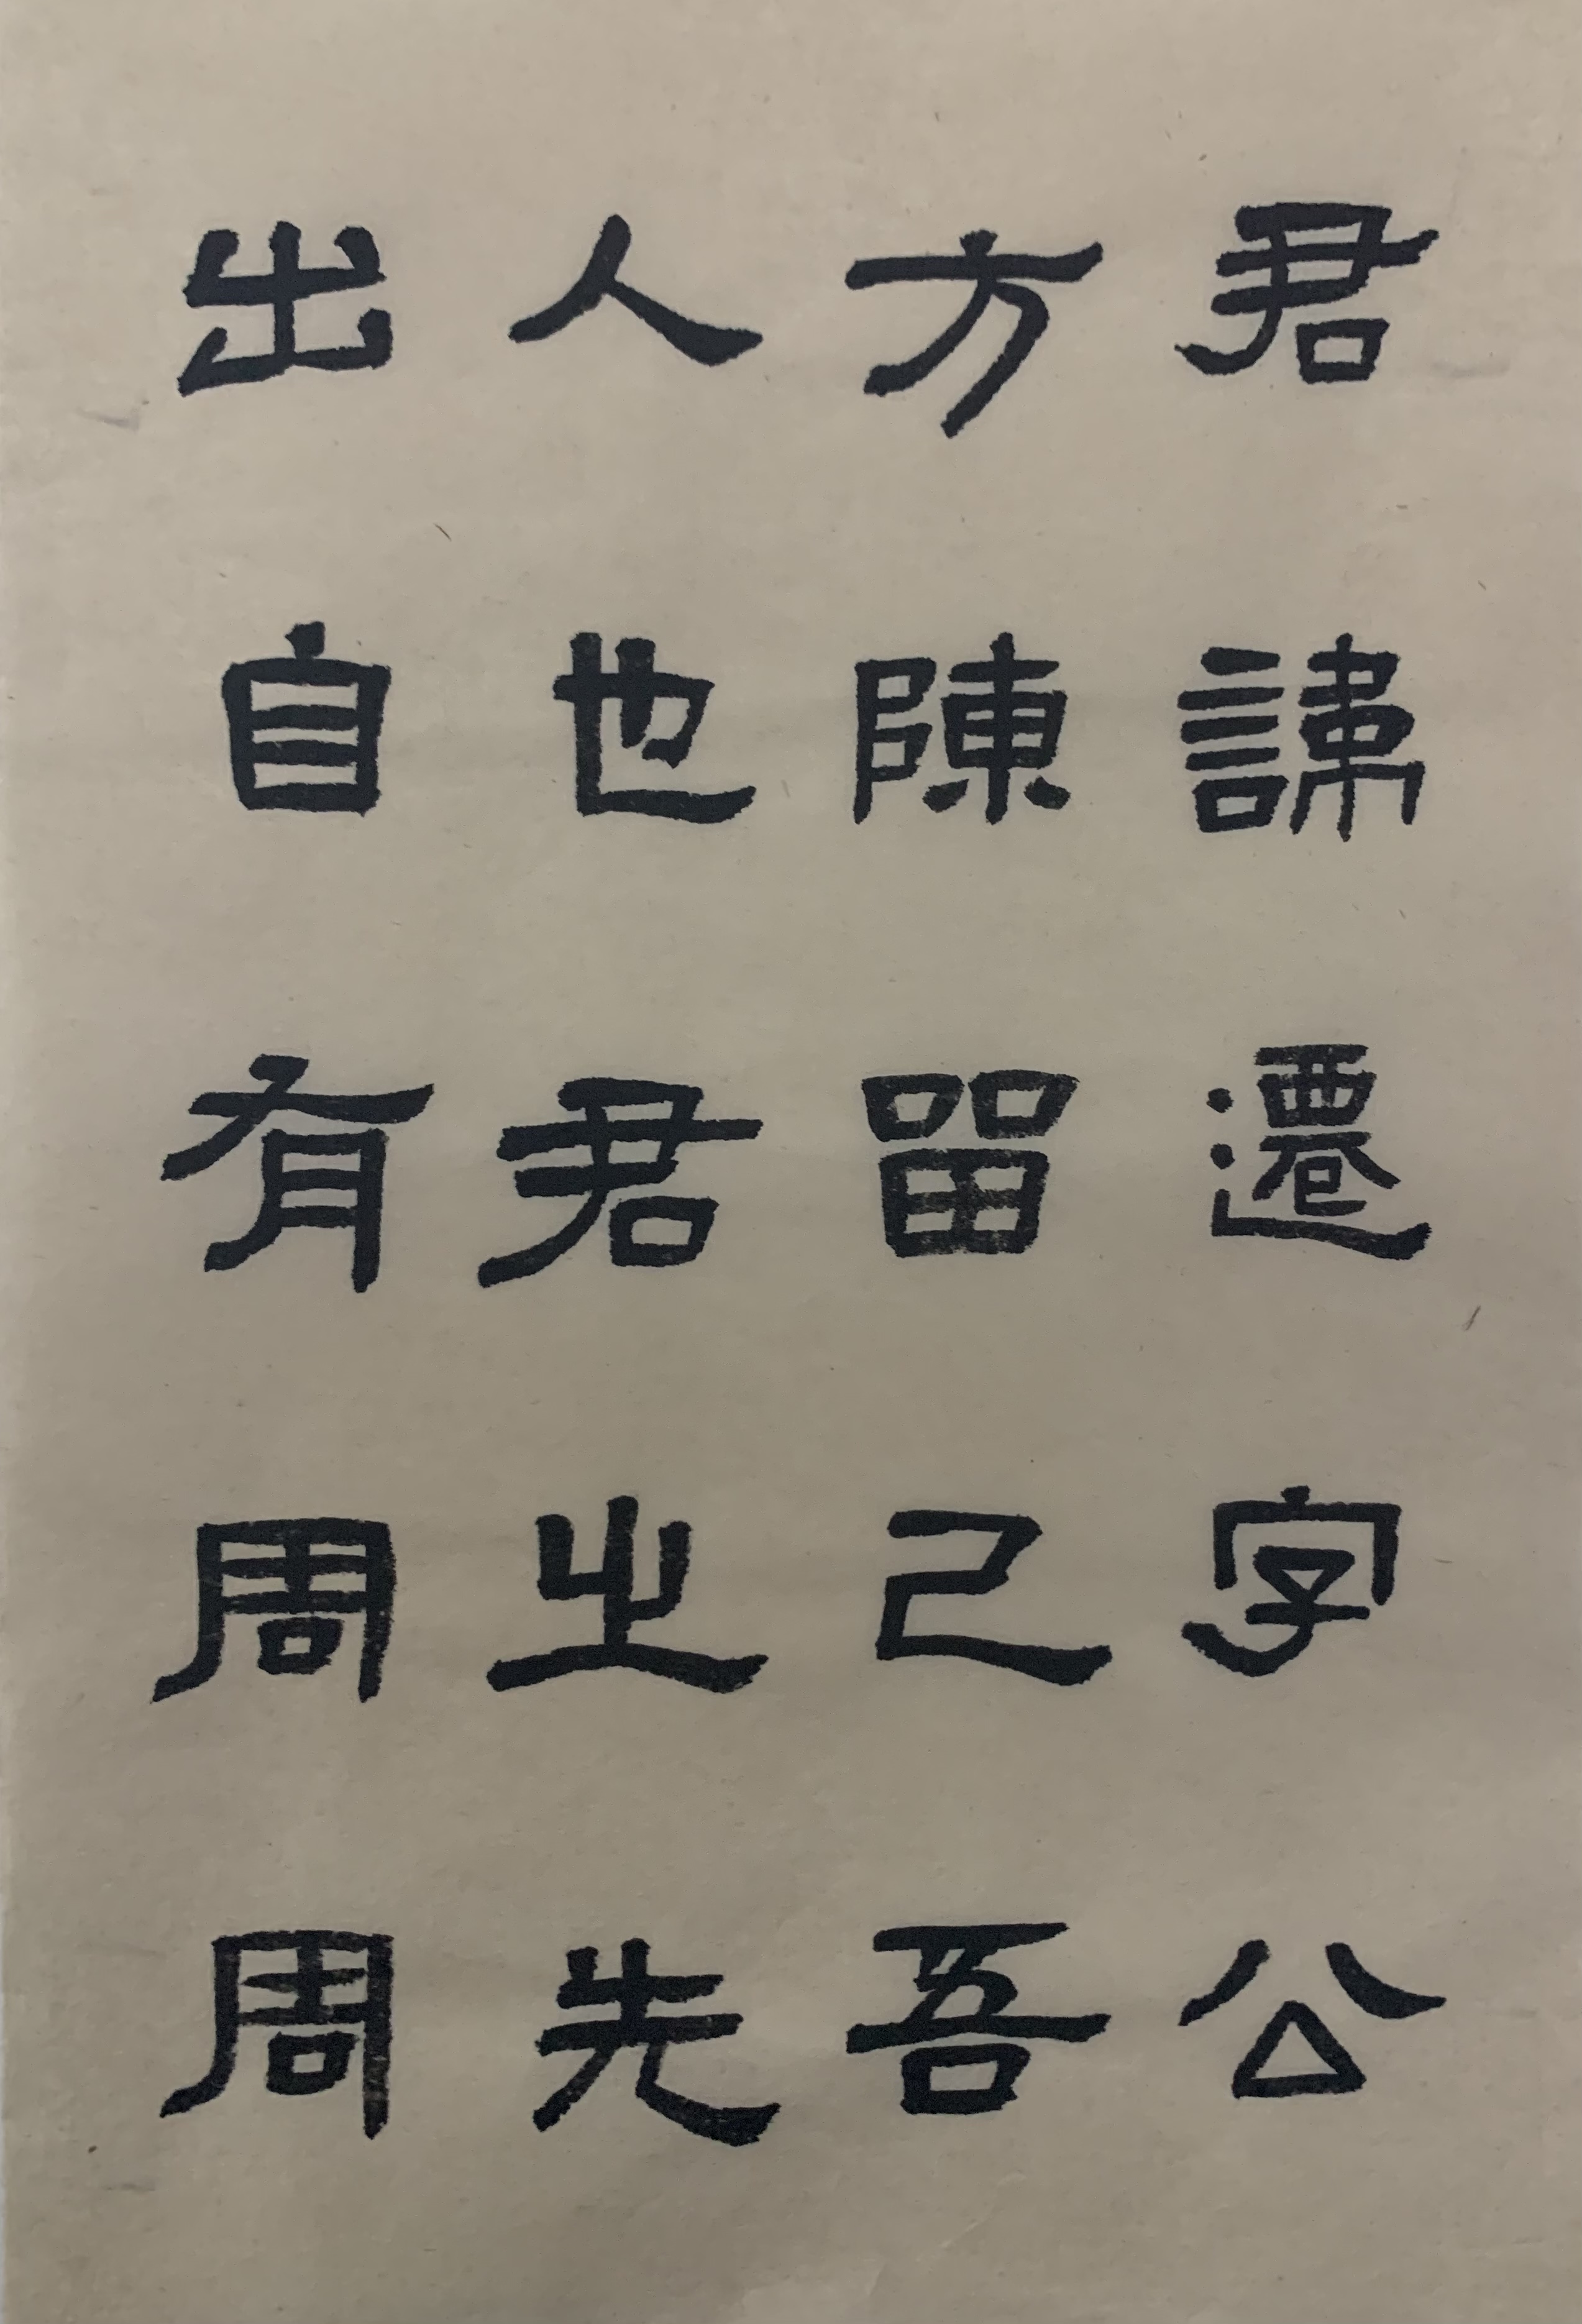 君諱遷字公
方陳留己吾
人也君之先
出自有周周